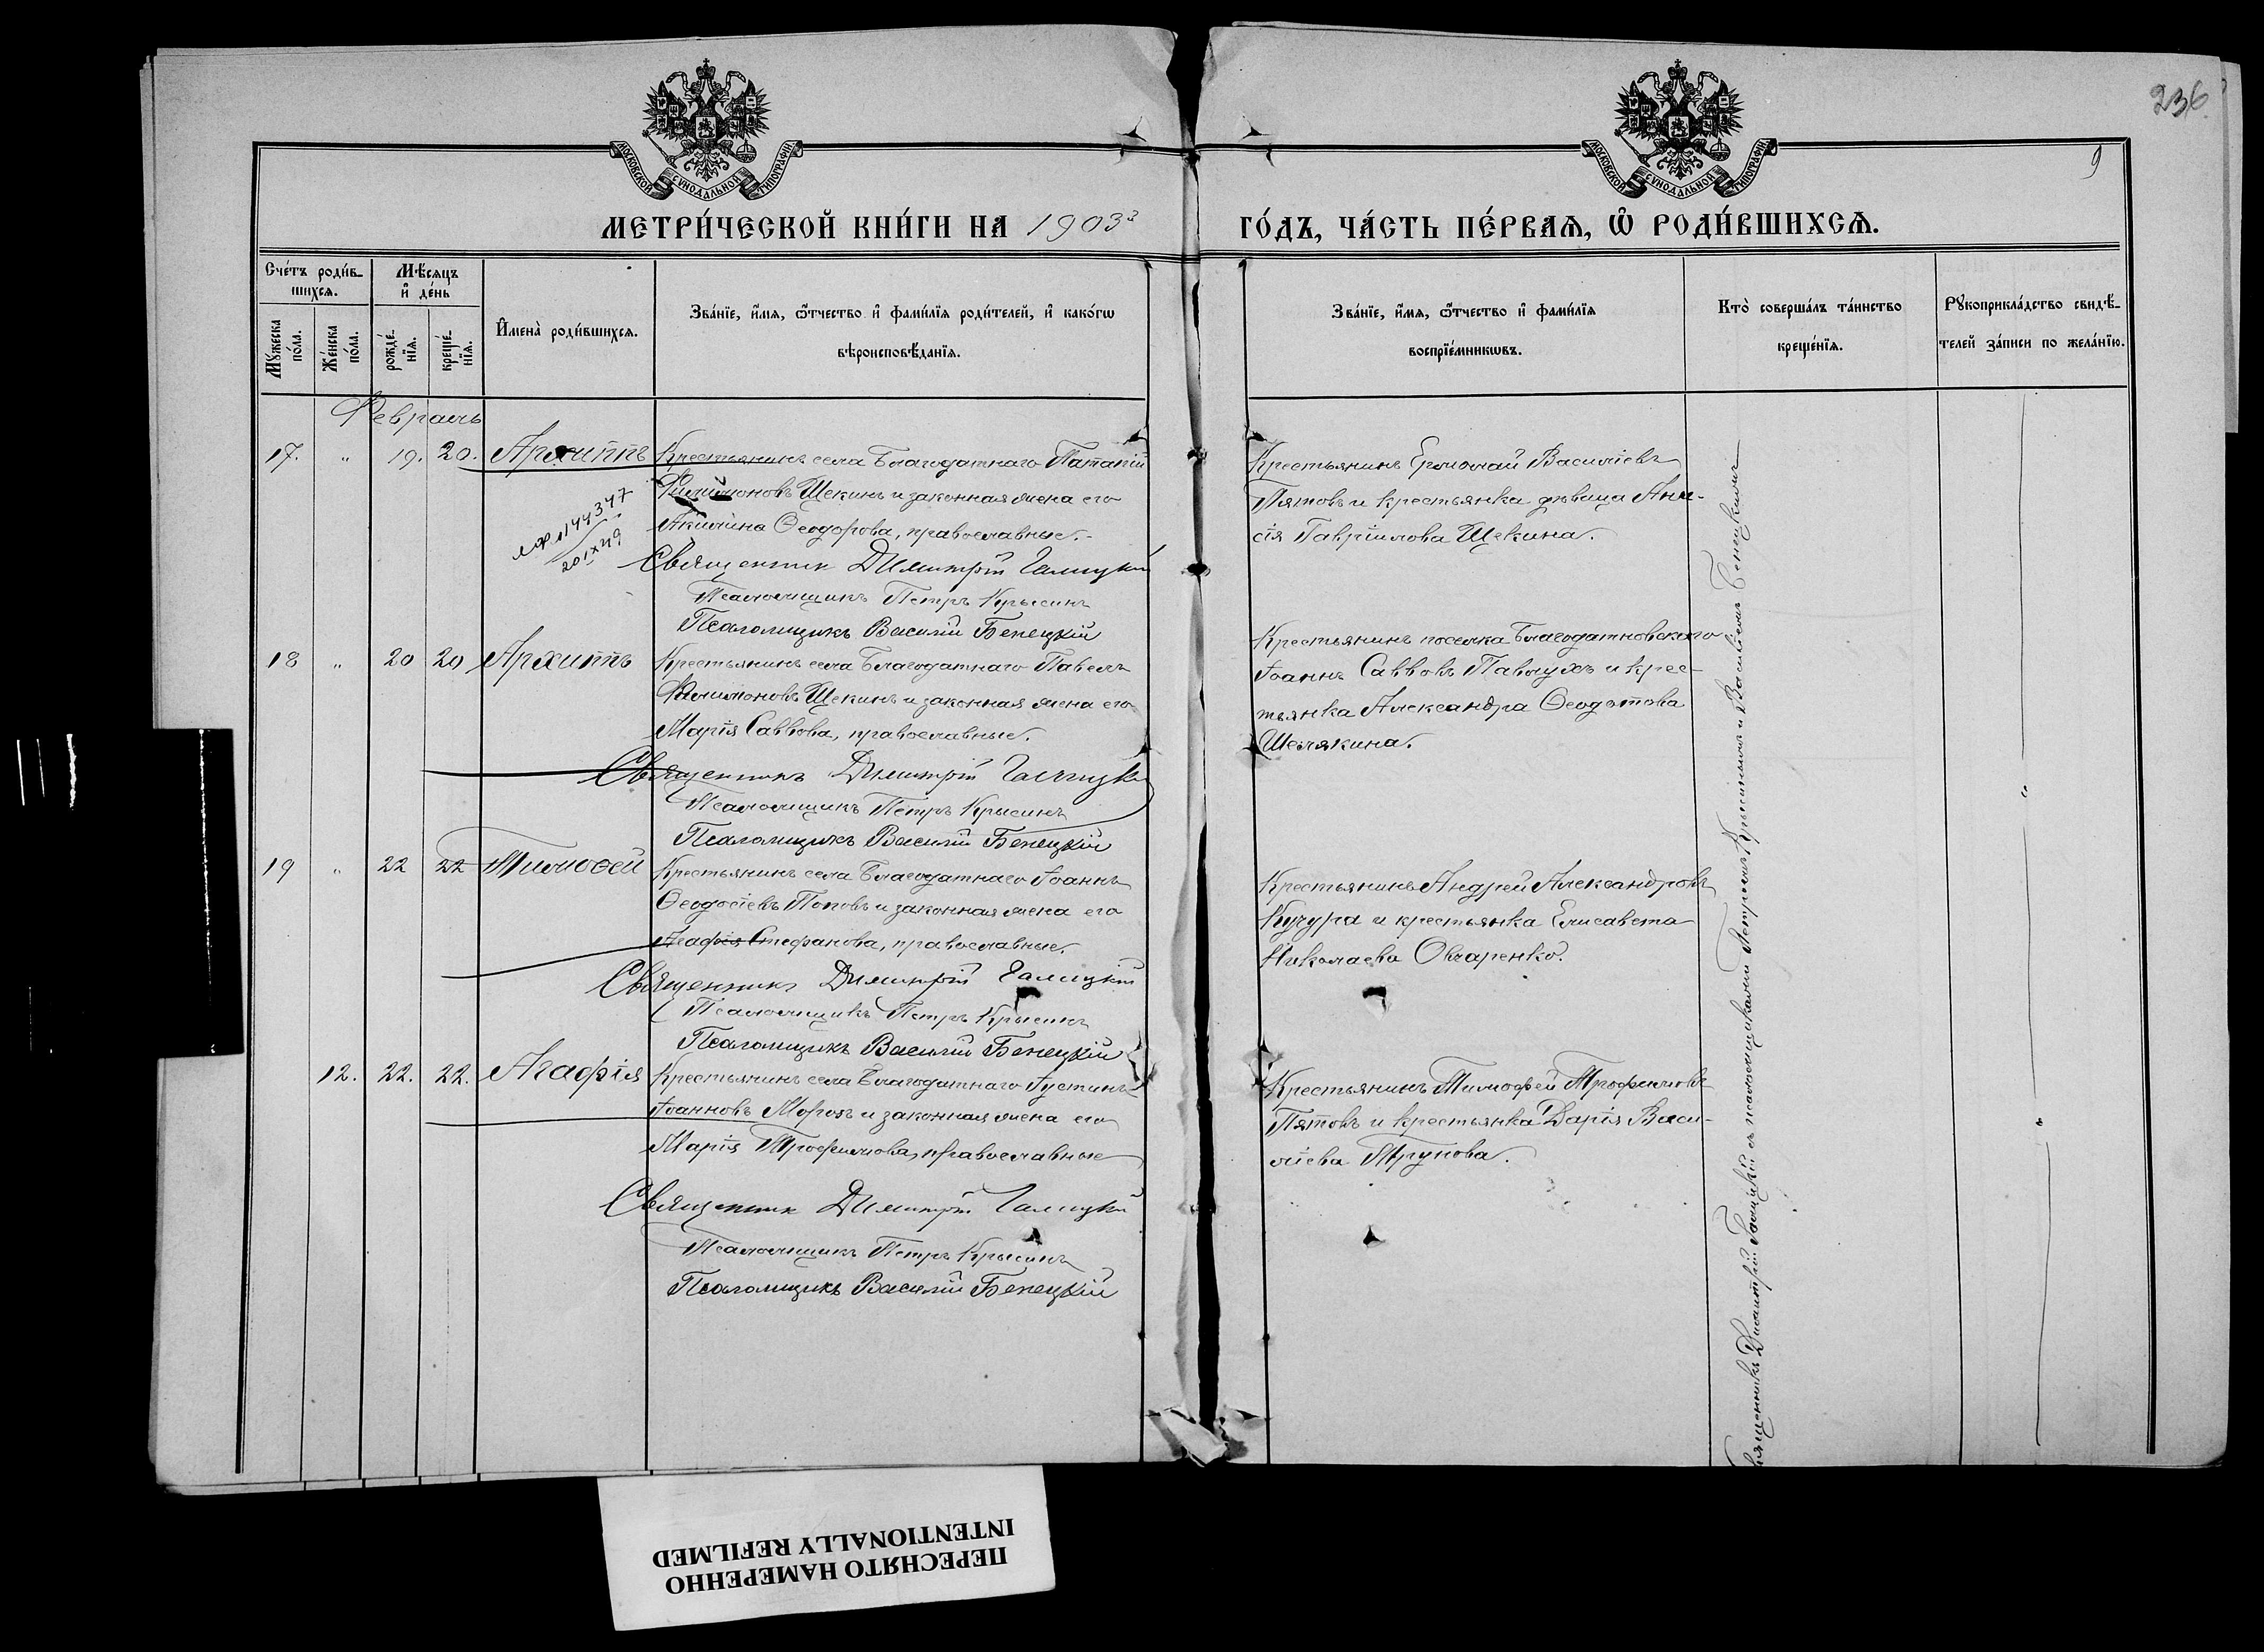 236
9
МОСКОВСКОЙ СѴНОДАЛЬНОЙ ТИПОГРАФІИ
МОСКОВСКОЙ СѴНОДАЛЬНОЙ ТИПОГРАФІИ
МЕТРИ́ЧЕСКОЙ КНИ́ГИ НА 1903й
ГО́ДЪ, ЧА́СТЬ ПЕ́РВАѦ, Ѽ РОДИ́ВШИХСѦ.
Сче́тъ роди́в-
шихсѧ.
Мѣ́сѧцъ
и҆ де́нь
Мꙋ́жеска
по́ла.
Же́нска
по́ла.
рожде́-
нїѧ.
креще́-
нїѧ.
И҆мена̀ роди́вшихсѧ.
Зва́нїе, и҆́мѧ, ѻ҆́тчество и҆ фами́лїѧ роди́телей, и҆ како́гѡ
вѣроисповѣ́данїѧ.
Зва́нїе, и҆́мѧ, ѻ҆́тчество и҆ фами́лїѧ
воспрїе́мникѡвъ.
Кто̀ соверша́лъ та́инство
креще́нїѧ.
Рꙋкоприкла́дство свидѣ́-
телей за́писи по жела́нїю.
Февраль
17. " 19. 20. Архиппъ
Крестьянинъ села Благодатнаго Патапій
Филимоновъ Щекинъ и законная жена его
Акилина Ѳеодорова, православные.
Священник Димитрій Галицкій
Псаломщикъ Петръ Крысинъ
Псаломщикъ Василій Бенецкій
Крестьянинъ Ермолай Василіевъ
Пятовъ и крестьянка дѣвица Ани-
сія Гавріилова Щекина.
18 " 20 20 Архиппъ
Крестьянинъ села Благодатнаго Павелъ
Филимоновъ Щекинъ и законная жена его
Марія Саввова, православные.
Священникъ Димитрій Галицкій
Псаломщикъ Петръ Крысинъ
Псаломщикъ Василій Бенецкій
Крестьянинъ поселка Благодатновскаго
Іоаннъ Саввовъ Павлухъ и крес-
тьянка Александра Ѳеодотова
Шелякина.
19 " 22 22 Тимоѳей
Крестьянинъ села Благодатнаго Іоаннъ
Ѳеодосіевъ Поповъ и законная жена его
Агафія Стефанова, православные.
Священникъ Димитрій Галицкій
Псаломщикъ Петръ Крысинъ
Псаломщикъ Василій Бенецкій
Крестьянинъ Андрей Александровъ
Кучура и крестьянка Елисавета
Николаева Овчаренко.
12. 22. 22. Агафія
Крестьянинъ села Благодатнаго Іустинъ
Іоанновъ Морозъ и законная жена его
Марія Трофимова, православные
Священник Димитрій Галицкій
Псаломщикъ Петръ Крысинъ
Псаломщикъ Василій Бенецкій
Крестьянинъ Тимофей Трофимовъ
Пятовъ и крестьянка Дарія Васи-
ліева Трунова.
Священникъ Димитрій Галицкій съ псаломщиками Петромъ Крысинымъ и Василіемъ Бенецкимъ
ПЕРЕСНЯТО НАМЕРЕННО
INTENTIONALLY REFILMED